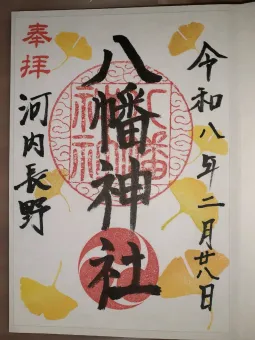 令和八年二月廿八日
八幡神社
奉拝
河内長野